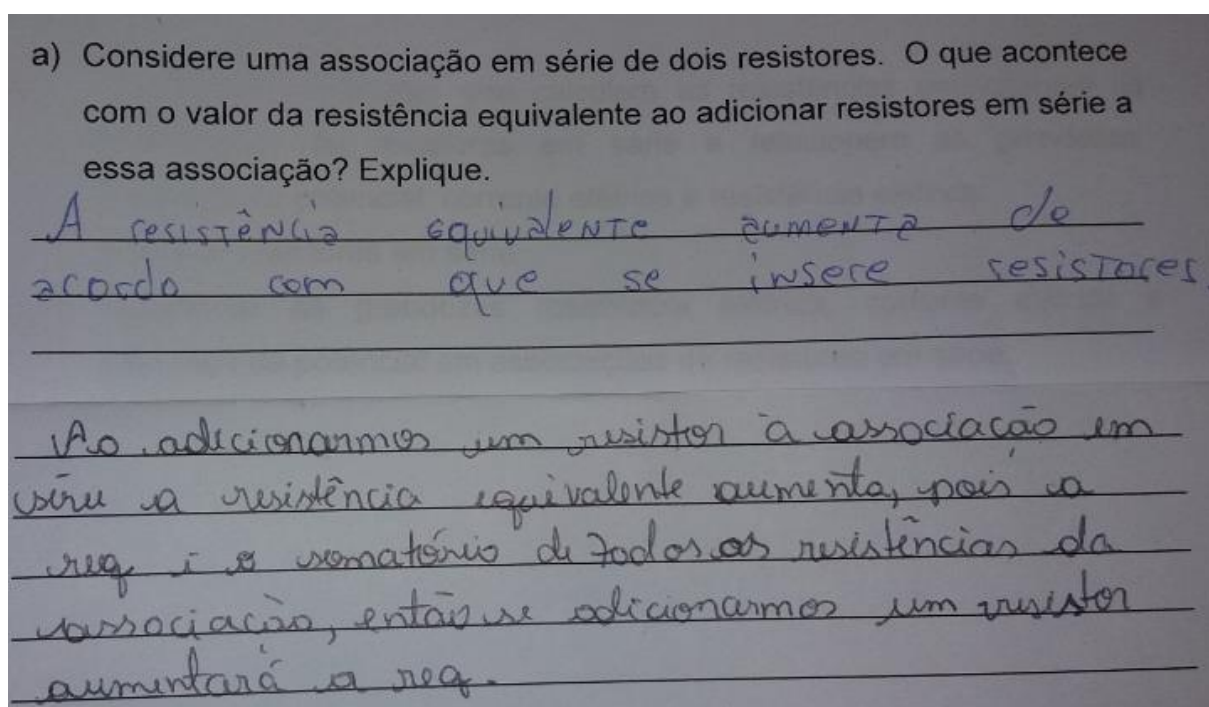 a) Considere uma associação em série de dois resistores. O que acontece
com o valor da resistência equivalente ao adicionar resistores em série a
essa associação? Explique.
A resistência equivalente aumenta de
acordo com que se insere resistores
Ao adicionarmos um resistor à associação em
série a resistência equivalente aumenta, pois a
req é o somatório de todos as resistências da
associação, então se adicionarmos um resistor
aumentará a req.